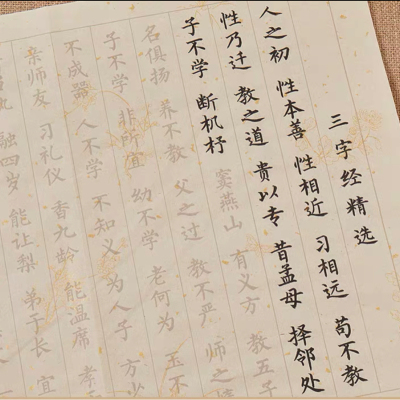 三字经精选
人之初 性本善 性相近 习相远 苟不教
性乃迁 教之道 贵以专 昔孟母 择邻处
子不学 断机杼 窦燕山 有义方 教五子
名俱扬 养不教 父之过 教不严 师之
子不学 非所宜 幼不学 老何为 玉不
不成器 人不学 不知义 为人子 方少
亲师友 习礼仪 香九龄 能温席 孝
融四岁 能让梨 弟于长 宜